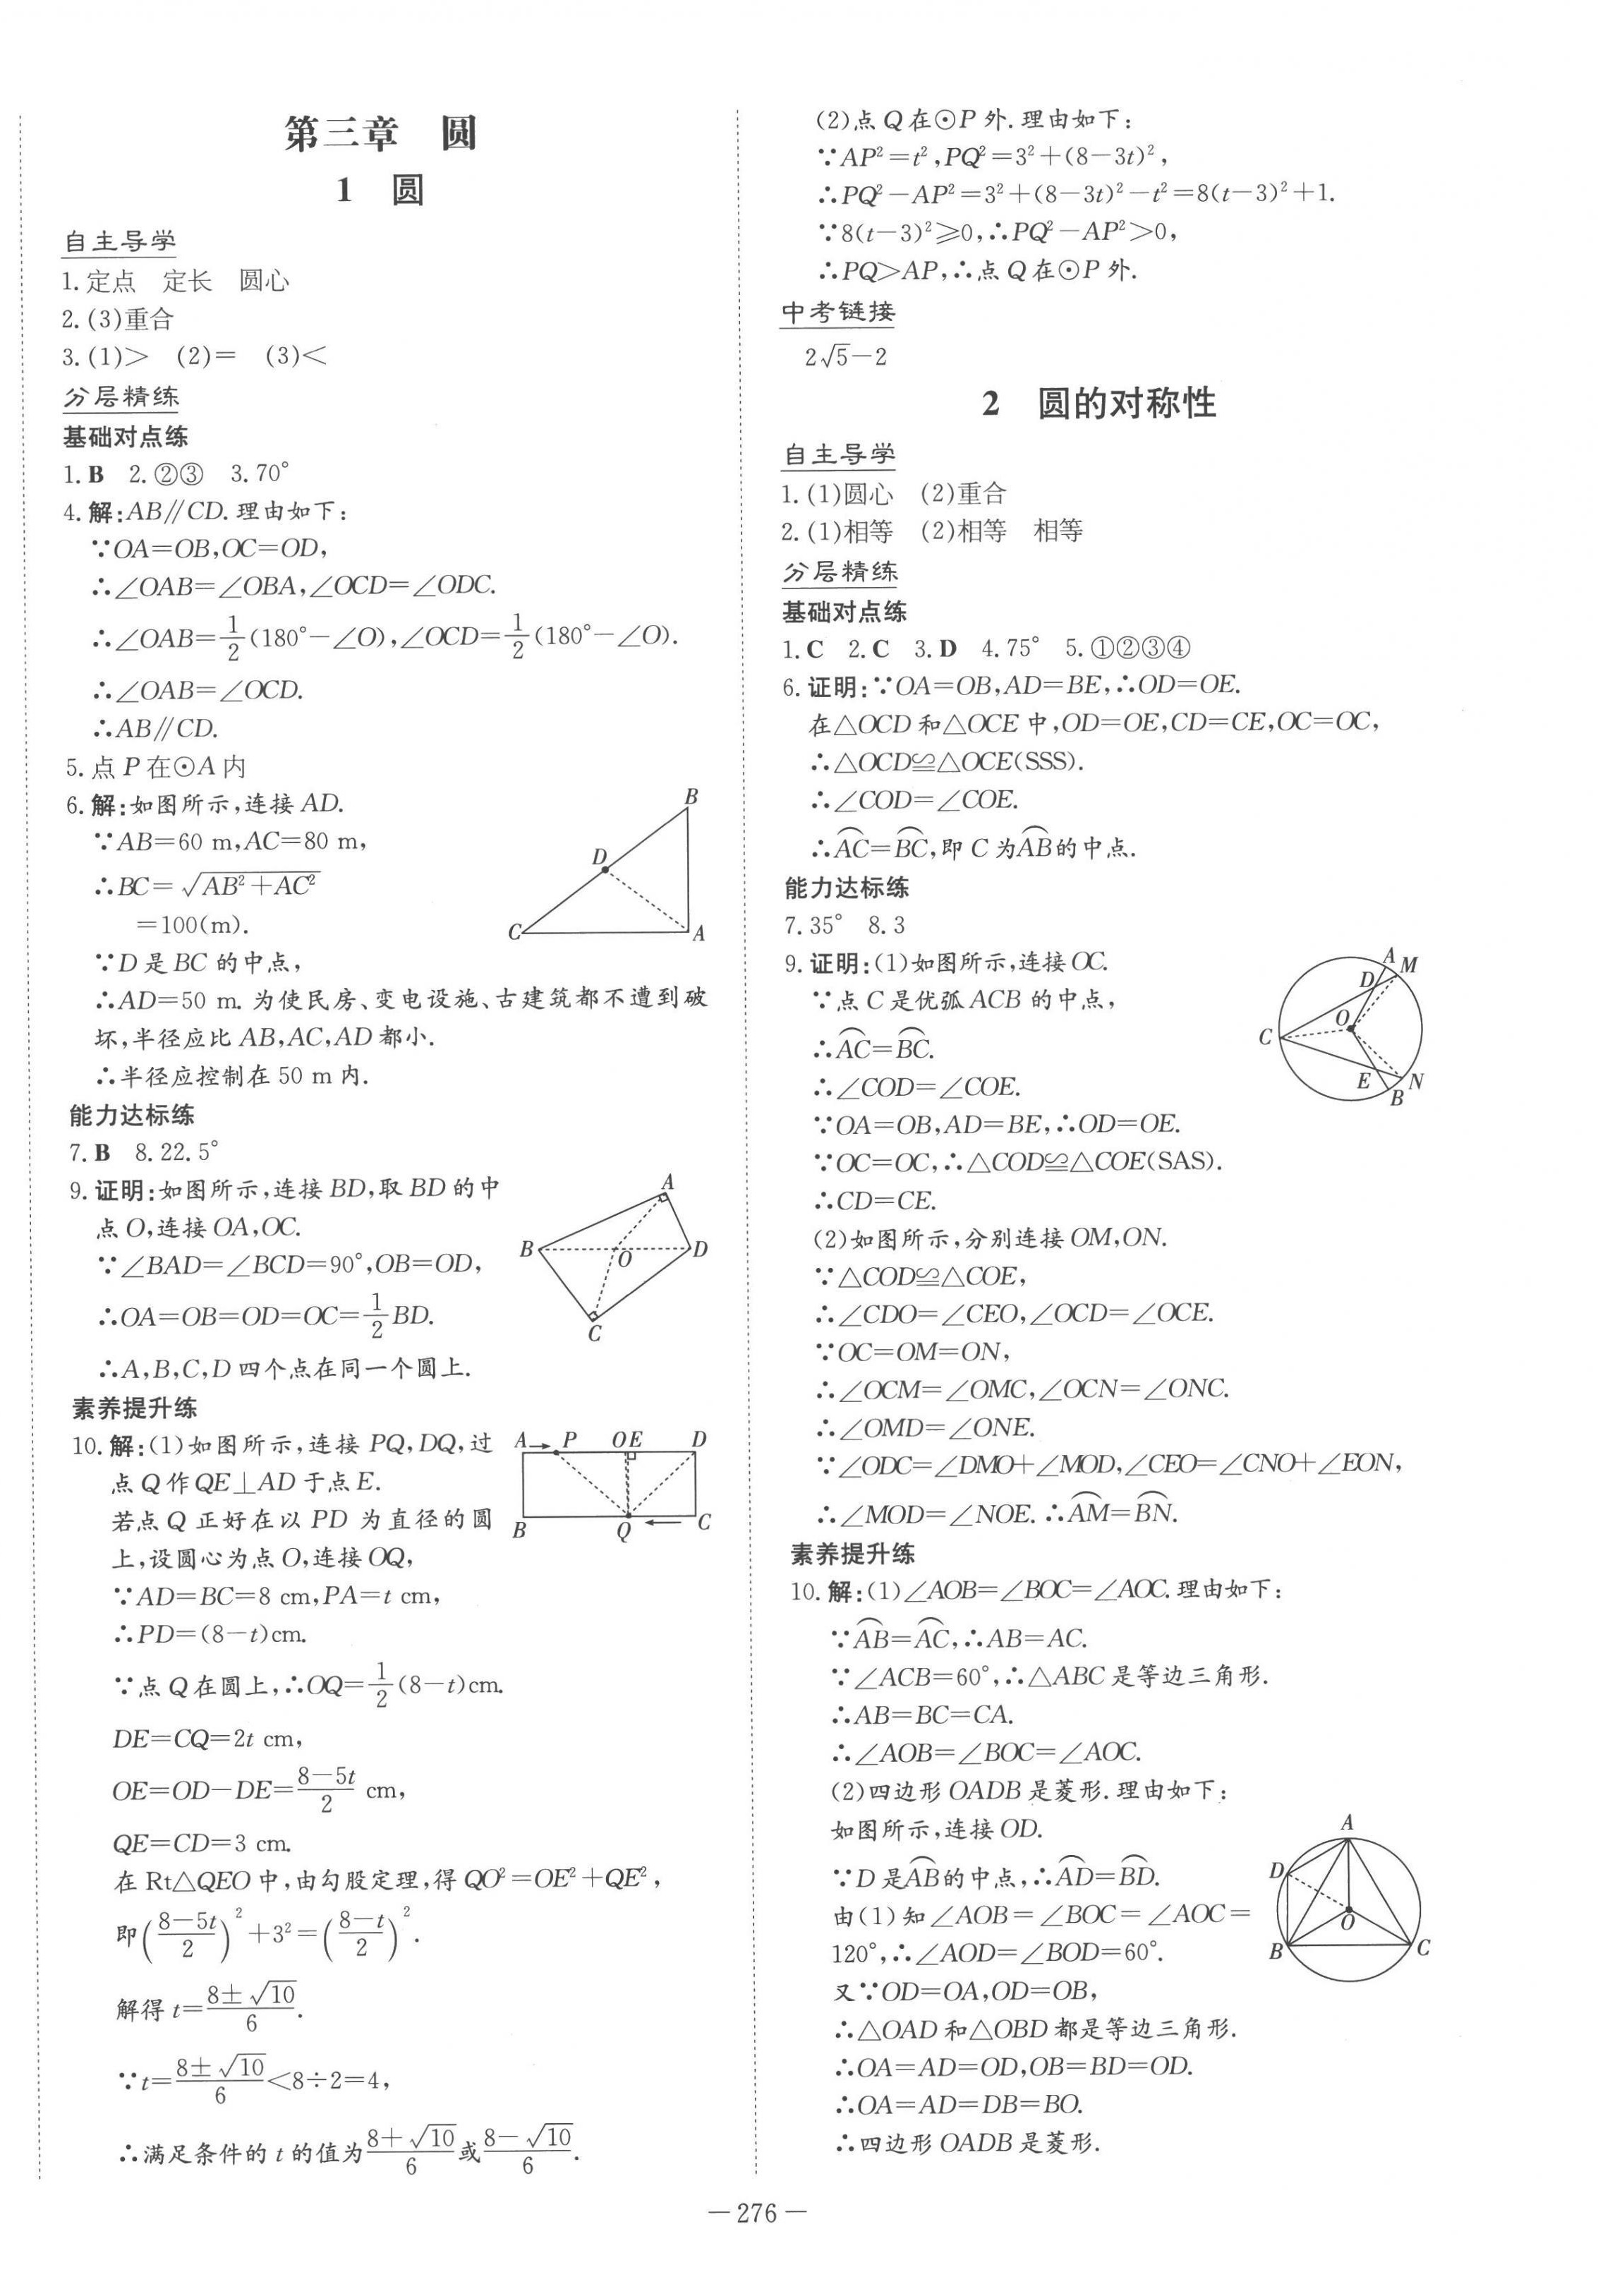 第三章 圆
1 圆
自主导学
1.定点 定长 圆心
2.(3)重合
3.(1)> (2)= (3)<
分层精练
基础对点练
1.B 2.②③ 3.70°
4.解:AB∥CD.理由如下:
∵OA=OB,OC=OD,
∴∠OAB=∠OBA,∠OCD=∠ODC.
∴∠OAB=1/2(180°-∠O),∠OCD=1/2(180°-∠O).
∴∠OAB=∠OCD.
∴AB∥CD.
5.点P在⊙A内
6.解:如图所示,连接AD.
∵AB=60 m,AC=80 m,
∴BC=√(AB²+AC²)
=100(m).
∵D是BC的中点,
∴AD=50 m.为使民房、变电设施、古建筑都不遭到破
坏,半径应比AB,AC,AD都小.
∴半径应控制在50 m内.
B
D
C
A
能力达标练
7.B 8.22.5°
9.证明:如图所示,连接BD,取BD的中
点O,连接OA,OC.
∵∠BAD=∠BCD=90°,OB=OD,
∴OA=OB=OD=OC=1/2BD.
∴A,B,C,D四个点在同一个圆上.
A
B
O
D
C
素养提升练
10.解:(1)如图所示,连接PQ,DQ,过
点Q作QE⊥AD于点E.
若点Q正好在以PD为直径的圆
上,设圆心为点O,连接OQ,
A→ P OE D
B Q ← C
∵AD=BC=8 cm,PA=t cm,
∴PD=(8-t)cm.
∵点Q在圆上,∴OQ=1/2(8-t)cm.
DE=CQ=2t cm,
OE=OD-DE=(8-5t)/2 cm,
QE=CD=3 cm.
在Rt△QEO中,由勾股定理,得QO²=OE²+QE²,
即((8-5t)/2)²+3²=((8-t)/2)².
解得t=(8±√10)/6.
∵t=(8±√10)/6<8÷2=4,
∴满足条件的t的值为(8+√10)/6或(8-√10)/6.
(2)点Q在⊙P外.理由如下:
∵AP²=t²,PQ²=3²+(8-3t)²,
∴PQ²-AP²=3²+(8-3t)²-t²=8(t-3)²+1.
∵8(t-3)²≥0,∴PQ²-AP²>0,
∴PQ>AP,∴点Q在⊙P外.
中考链接
2√5-2
2 圆的对称性
自主导学
1.(1)圆心 (2)重合
2.(1)相等 (2)相等 相等
分层精练
基础对点练
1.C 2.C 3.D 4.75° 5.①②③④
6.证明:∵OA=OB,AD=BE,∴OD=OE.
在△OCD和△OCE中,OD=OE,CD=CE,OC=OC,
∴△OCD≌△OCE(SSS).
∴∠COD=∠COE.
∴⌒AC=⌒BC,即C为⌒AB的中点.
能力达标练
7.35° 8.3
9.证明:(1)如图所示,连接OC.
∵点C是优弧ACB的中点,
∴⌒AC=⌒BC.
∴∠COD=∠COE.
∵OA=OB,AD=BE,∴OD=OE.
∵OC=OC,∴△COD≌△COE(SAS).
∴CD=CE.
A
M
D
O
C
E
N
B
(2)如图所示,分别连接OM,ON.
∵△COD≌△COE,
∴∠CDO=∠CEO,∠OCD=∠OCE.
∵OC=OM=ON,
∴∠OCM=∠OMC,∠OCN=∠ONC.
∴∠OMD=∠ONE.
∵∠ODC=∠DMO+∠MOD,∠CEO=∠CNO+∠EON,
∴∠MOD=∠NOE.∴⌒AM=⌒BN.
素养提升练
10.解:(1)∠AOB=∠BOC=∠AOC.理由如下:
∵⌒AB=⌒AC,∴AB=AC.
∵∠ACB=60°,∴△ABC是等边三角形.
∴AB=BC=CA.
∴∠AOB=∠BOC=∠AOC.
(2)四边形OADB是菱形.理由如下:
如图所示,连接OD.
∵D是⌒AB的中点,∴⌒AD=⌒BD.
由(1)知∠AOB=∠BOC=∠AOC=
120°,∴∠AOD=∠BOD=60°.
又∵OD=OA,OD=OB,
∴△OAD和△OBD都是等边三角形.
∴OA=AD=OD,OB=BD=OD.
∴OA=AD=DB=BO.
∴四边形OADB是菱形.
A
D
O
B
C
—276—